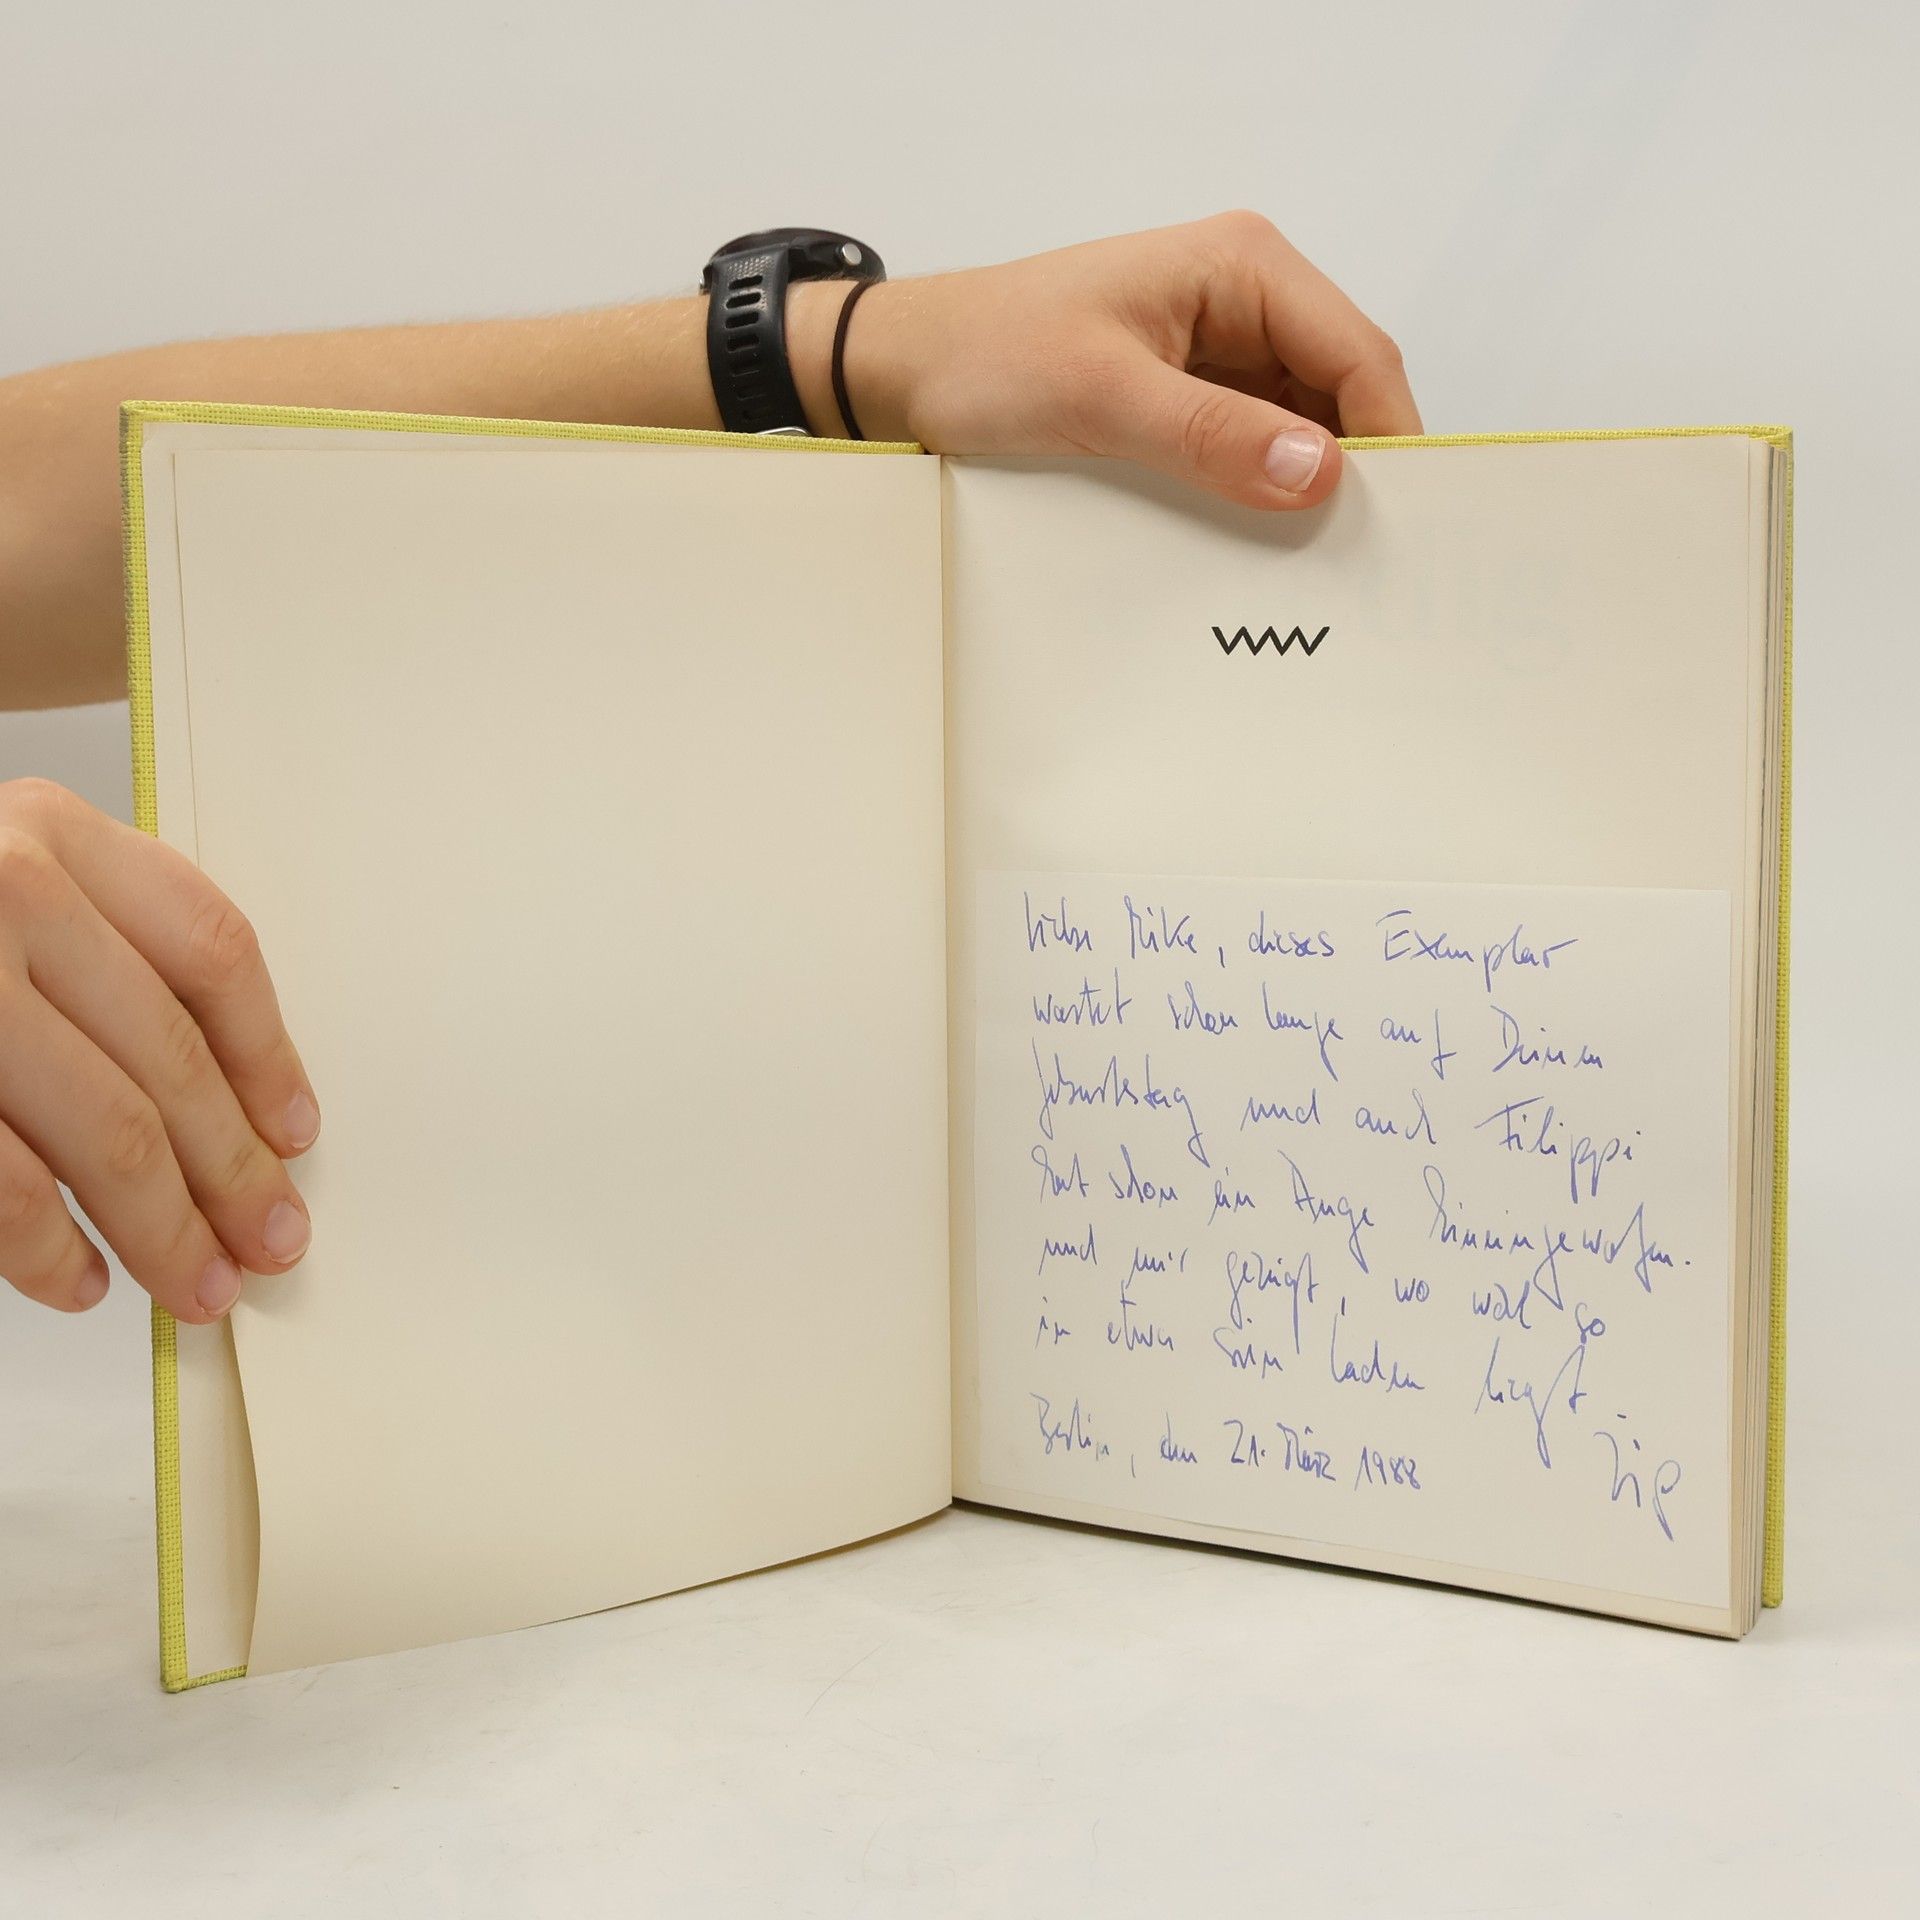 Liebe Mike, dieses Exemplar
wartet schon lange auf Deinen
Geburtstag und auch Filippi
hat schon ein Auge hineingeworfen.
und mir gezeigt, wo wohl so
in etwa sein Laden liegt.
Berlin, den 21. März 1988